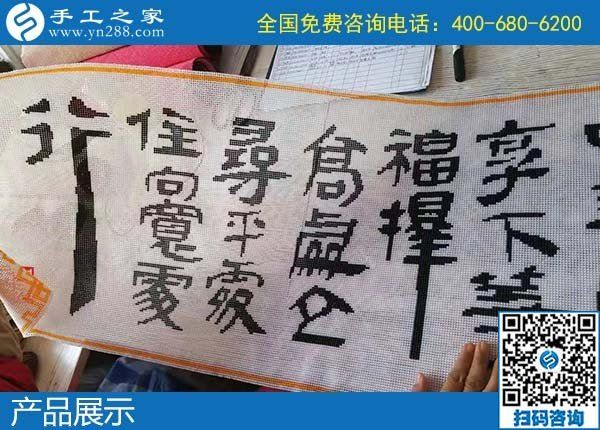 手工之家
www.yn288.com
全国免费咨询电话：400-680-6200
享下等
福擇
高處立
尋平處
住向寬處
行
产品展示
扫码咨询